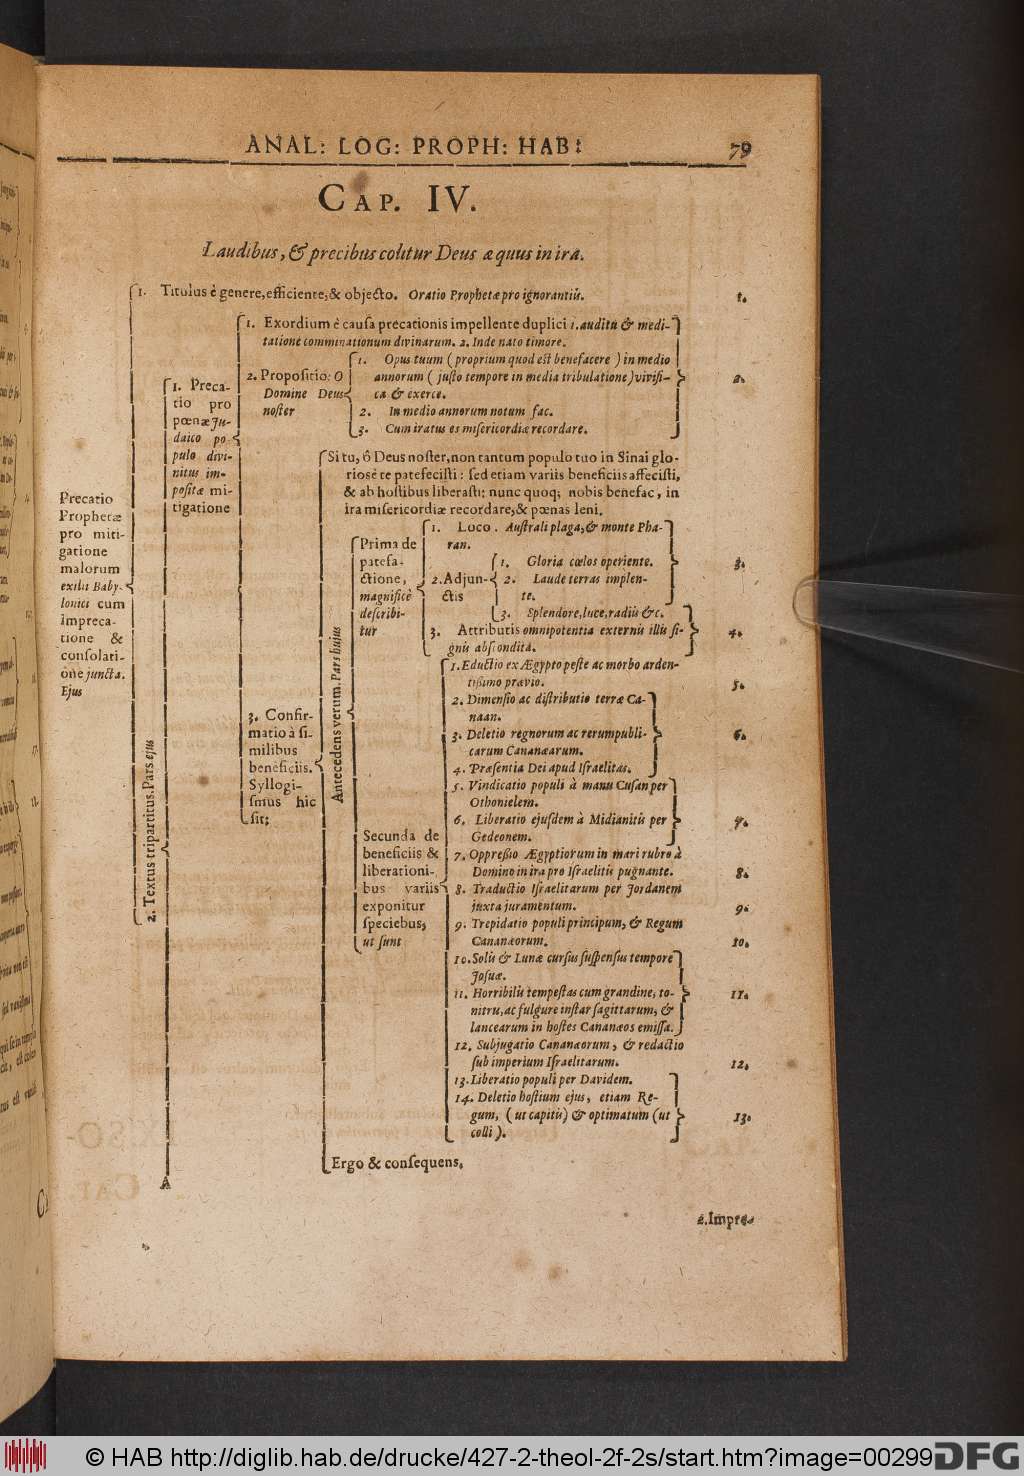 ANAL: LOG: PROPH: HAB:
79
CAP. IV.
Laudibus, & precibus colitur Deus æquus in ira.
1. Titulus è genere, efficiente, & objecto. Oratio Prophetæ pro ignorantiis.
1.
Precatio
Prophetæ
pro miti-
gatione
malorum
exilii Baby-
lonici cum
impreca-
tione &
consolati-
one juncta.
Ejus
2. Textus tripartitus. Pars ejus
1. Preca-
tio pro
pœnæ Ju-
daico po-
pulo divi-
nitus im-
positæ mi-
tigatione
1. Exordium è causa precationis impellente duplici 1. auditu & medi-
tatione comminationum divinarum. 2. Inde nato timore.
2. Propositio: O
Domine Deus
noster
1. Opus tuum (proprium quod est benefacere) in medio
annorum (justo tempore in media tribulatione) vivifi-
ca & exerce.
2. In medio annorum notum fac.
3. Cum iratus es misericordiæ recordare.
2.
3. Confir-
matio à si-
milibus
beneficiis.
Syllogi-
smus hic
sit:
Si tu, ô Deus noster, non tantum populo tuo in Sinai glo-
riosè te patefecisti: sed etiam variis beneficiis affecisti,
& ab hostibus liberasti: nunc quoq; nobis benefac, in
ira misericordiæ recordare, & pœnas leni.
Antecedens verum. Pars hujus
Prima de
patefa-
ctione,
magnificè
describi-
tur
1. Loco. Australi plaga, & monte Pha-
ran.
2. Adjun-
ctis
1. Gloria cœlos operiente.
2. Laude terras implen-
te.
3. Splendore, luce, radiis &c.
3.
3. Attributis omnipotentia externis illis si-
gnis abscondita.
4.
Secunda de
beneficiis &
liberationi-
bus variis
exponitur
speciebus,
ut sunt
1. Eductio ex Ægypto peste ac morbo arden-
tissimo prævio.
5.
2. Dimensio ac distributio terræ Ca-
naan.
3. Deletio regnorum ac rerumpubli-
carum Cananæarum.
6.
4. Præsentia Dei apud Israelitas.
5. Vindicatio populi à manu Cusan per
Othonielem.
6. Liberatio ejusdem à Midianitis per
Gedeonem.
7.
7. Oppressio Ægyptiorum in mari rubro à
Domino in ira pro Israelitis pugnante.
8.
8. Traductio Israelitarum per Jordanem
juxta juramentum.
9.
9. Trepidatio populi principum, & Regum
Cananæorum.
10.
10. Solis & Lunæ cursus suspensus tempore
Josuæ.
11. Horribilis tempestas cum grandine, to-
nitru, ac fulgure instar sagittarum, &
lancearum in hostes Cananæos emissa.
11.
12. Subjugatio Cananæorum, & redactio
sub imperium Israelitarum.
12.
13. Liberatio populi per Davidem.
14. Deletio hostium ejus, etiam Re-
gum, (ut capitis) & optimatum (ut
colli).
13.
Ergo & consequens.
A
2. Impre-
© HAB http://diglib.hab.de/drucke/427-2-theol-2f-2s/start.htm?image=00299
DFG